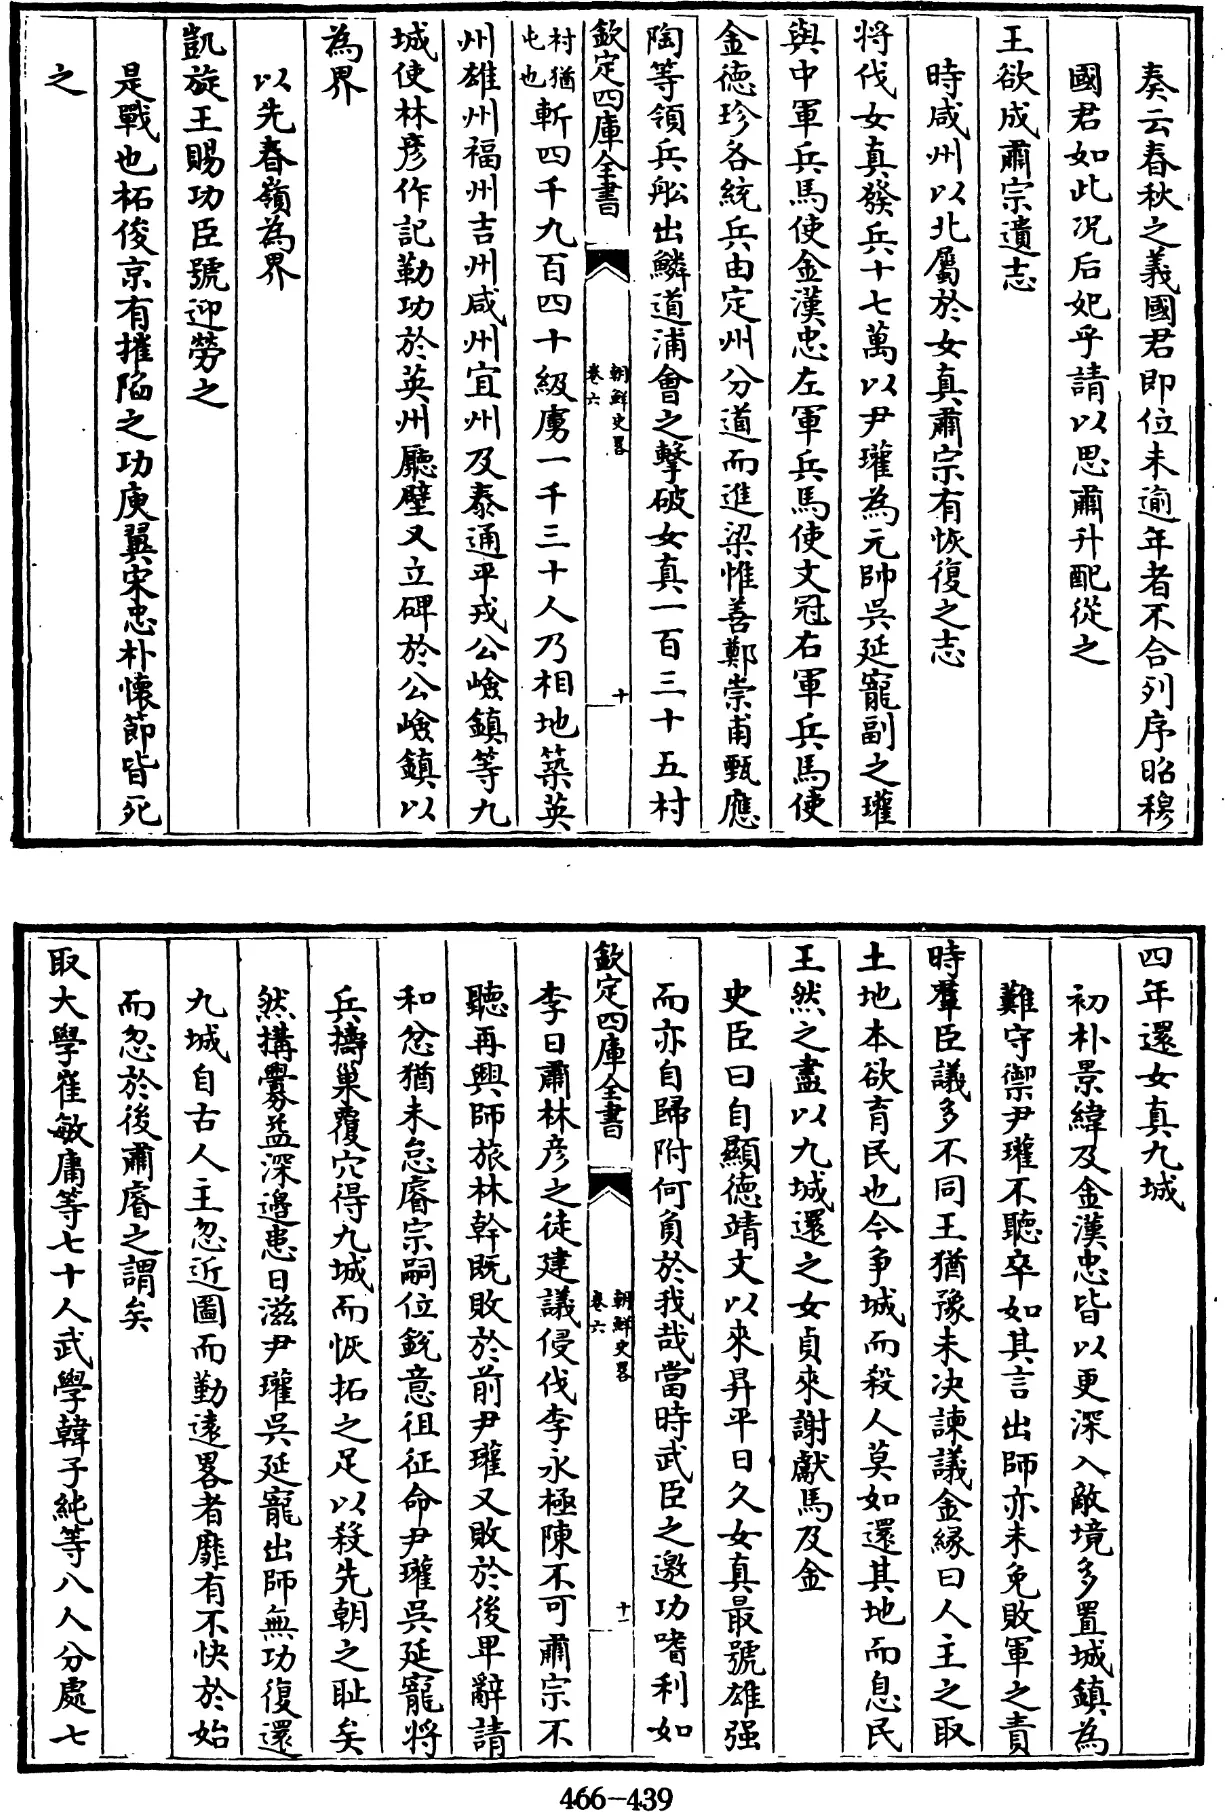 奏云春秋之義國君即位未逾年者不合列序昭穆
國君如此况后妃乎請以思肅升配從之
王欲成肅宗遺志
時咸州以北屬於女真肅宗有恢復之志
將伐女真發兵十七萬以尹瓘為元帥吳延寵副之瓘
與中軍兵馬使金漢忠左軍兵馬使文冠右軍兵馬使
金德珍各統兵由定州分道而進梁惟善鄭崇甫甄應
陶等領兵船出鱗道浦會之擊破女真一百三十五村
欽定四庫全書
朝鮮史畧
卷六
十
村猶
屯也
斬四千九百四十級虜一千三十人乃相地築英
州雄州福州吉州咸州宜州及泰通平戎公嶮鎮等九
城使林彦作記勒功於英州廳壁又立碑於公嶮鎮以
為界
以先春嶺為界
凱旋王賜功臣號迎勞之
是戰也柘俊京有摧陷之功庾翼宋忠朴懷節皆死
之
四年還女真九城
初朴景緯及金漢忠皆以更深入敵境多置城鎮為
難守禦尹瓘不聽卒如其言出師亦未免敗軍之責
時羣臣議多不同王猶豫未决諫議金緣曰人主之取
土地本欲育民也今争城而殺人莫如還其地而息民
王然之盡以九城還之女貞來謝獻馬及金
史臣曰自顯德靖文以來昇平日久女真最號雄强
而亦自歸附何負於我哉當時武臣之邀功嗜利如
欽定四庫全書
朝鮮史畧
卷六
十一
李日肅林彦之徒建議侵伐李永極陳不可肅宗不
聽再興師旅林幹既敗於前尹瓘又敗於後卑辭請
和忿猶未怠睿宗嗣位銳意徂征命尹瓘吳延寵將
兵擣巢覆穴得九城而恢拓之足以殺先朝之耻矣
然搆釁益深邊患日滋尹瓘吳延寵出師無功復還
九城自古人主忽近圖而勤遠畧者靡有不快於始
而忽於後肅睿之謂矣
取大學崔敏庸等七十人武學韓子純等八人分處七
466-439